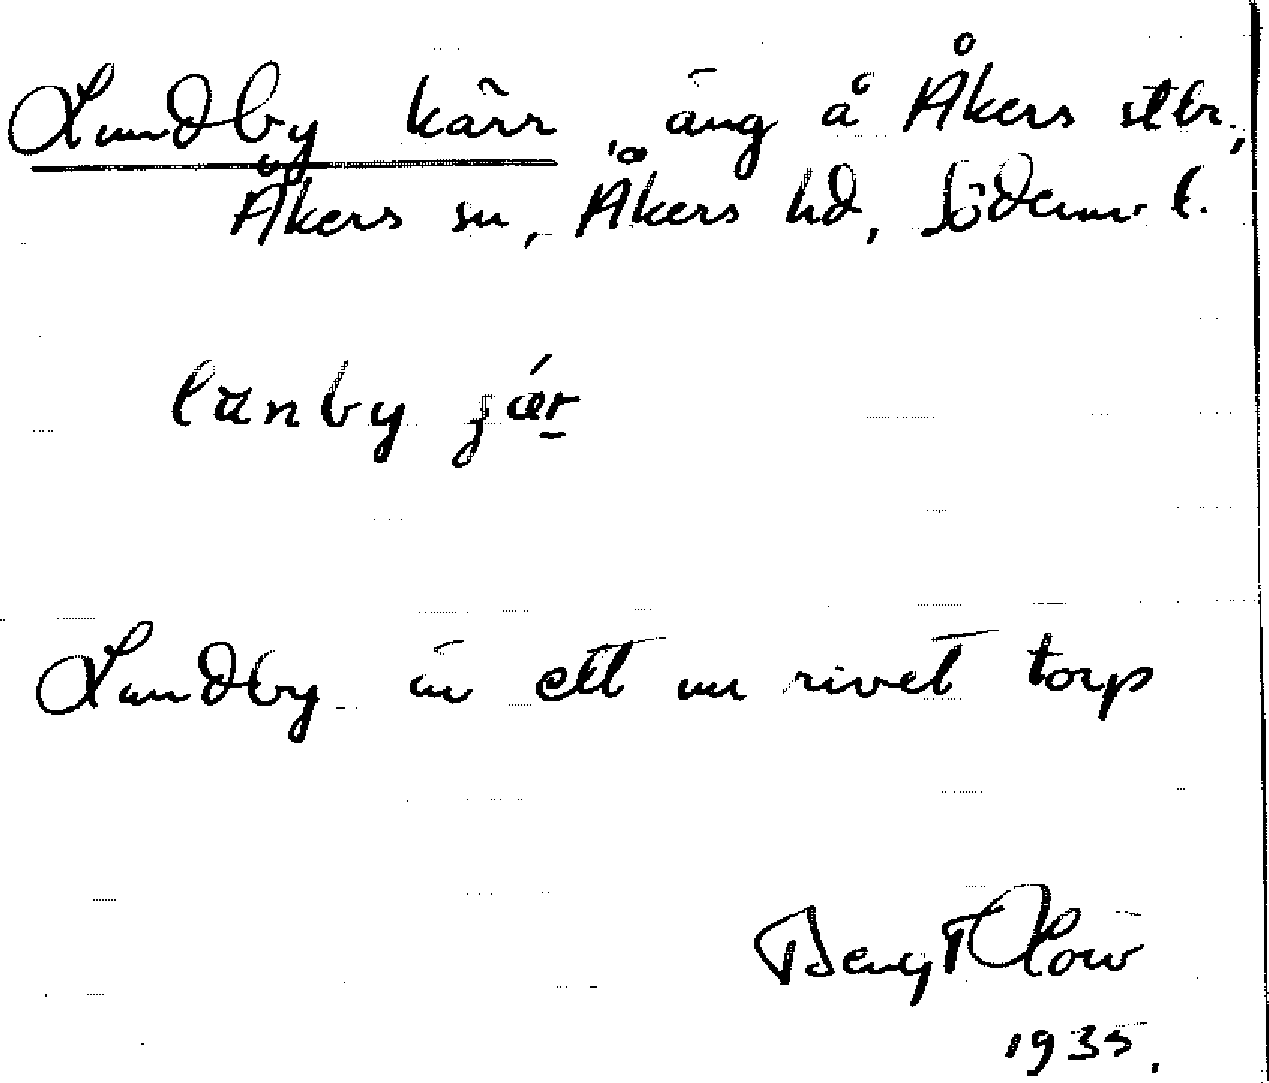 Lundby kärr, äng å Åkers stbr.,
Åkers sn, Åkers hd, Söderml.
lanby jä́r
Lundby är ett nu rivet torp
Bengt
1935.